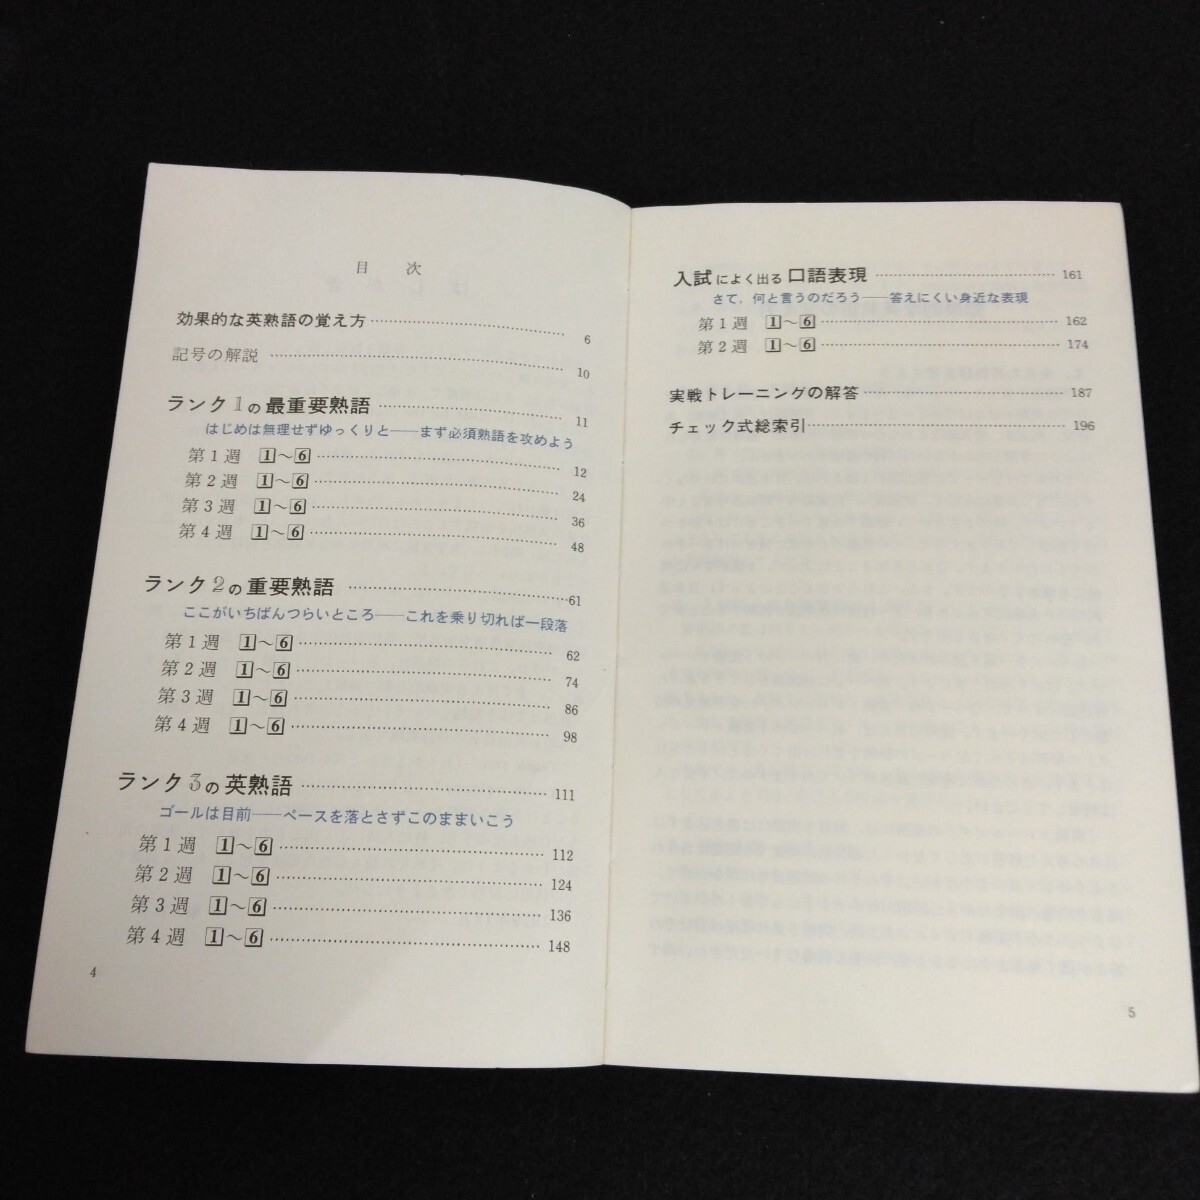 目　次
効果的な英熟語の覚え方……………………… 6
記号の解説 ……………………………………… 10
ランク1の最重要熟語 ………………………… 11
はじめは無理せずゆっくりと――まず必須熟語を攻めよう
第1週　1～6……………………………… 12
第2週　1～6……………………………… 24
第3週　1～6……………………………… 36
第4週　1～6……………………………… 48
ランク2の重要熟語 ……………………………61
ここがいちばんつらいところ――これを乗り切れば一段落
第1週　1～6……………………………… 62
第2週　1～6……………………………… 74
第3週　1～6……………………………… 86
第4週　1～6……………………………… 98
ランク3の英熟語 ……………………………… 111
ゴールは目前――ペースを落とさずこのままいこう
第1週　1～6……………………………… 112
第2週　1～6……………………………… 124
第3週　1～6……………………………… 136
第4週　1～6……………………………… 148
4
入試によく出る口語表現 ……………………… 161
さて，何と言うのだろう――答えにくい身近な表現
第1週　1～6……………………………… 162
第2週　1～6……………………………… 174
実戦トレーニングの解答 ……………………… 187
チェック式総索引……………………………… 196
5